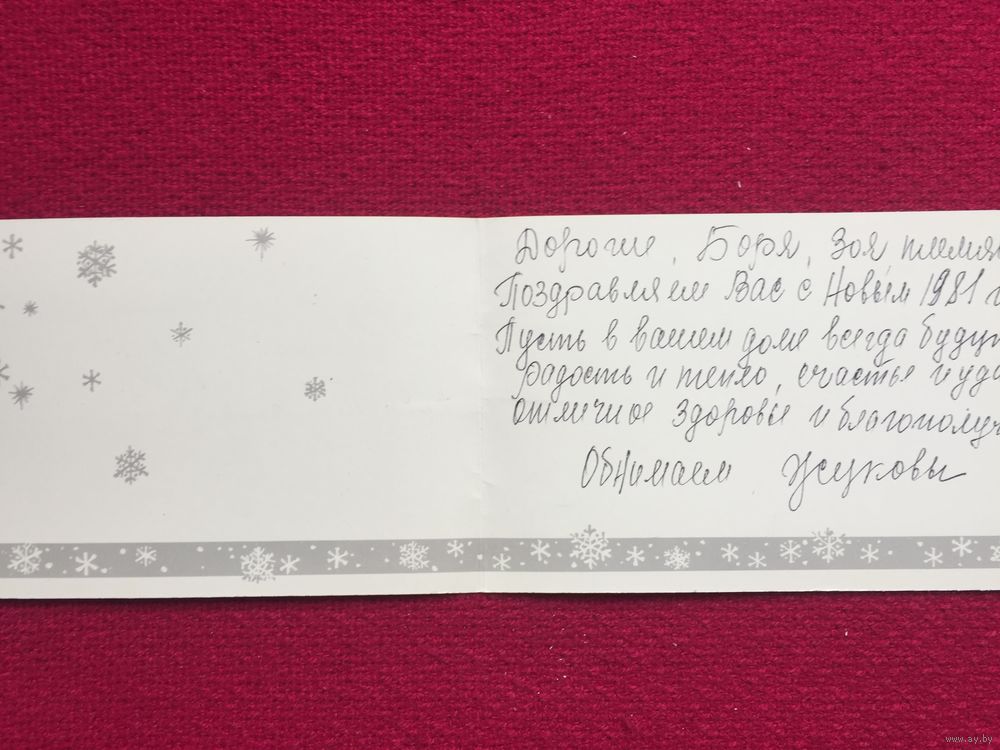 Дорогие, Боря, Зоя племян
Поздравляем Вас с Новым 1981 г
Пусть в вашем доме всегда будут
радость и тепло, счастье и уда
отличное здоровье и благополуч
Обнимаем
www.ay.by